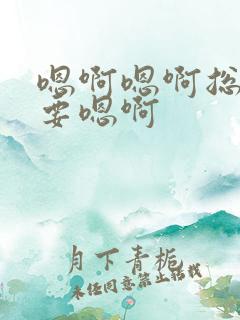 嗯啊嗯啊总
要嗯啊
月下青栀
未经同意禁止转载